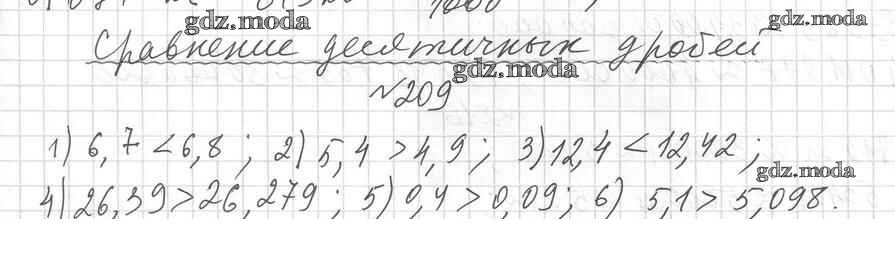 gdz.moda
gdz.moda
Сравнение десятичных дробей
gdz.moda
№209
1) 6,7 < 6,8 ; 2) 5,4 > 4,9 ; 3) 12,4 < 12,42 ;
gdz.moda
4) 26,39 > 26,279 ; 5) 0,4 > 0,09 ; 6) 5,1 > 5,098.
gdz.moda